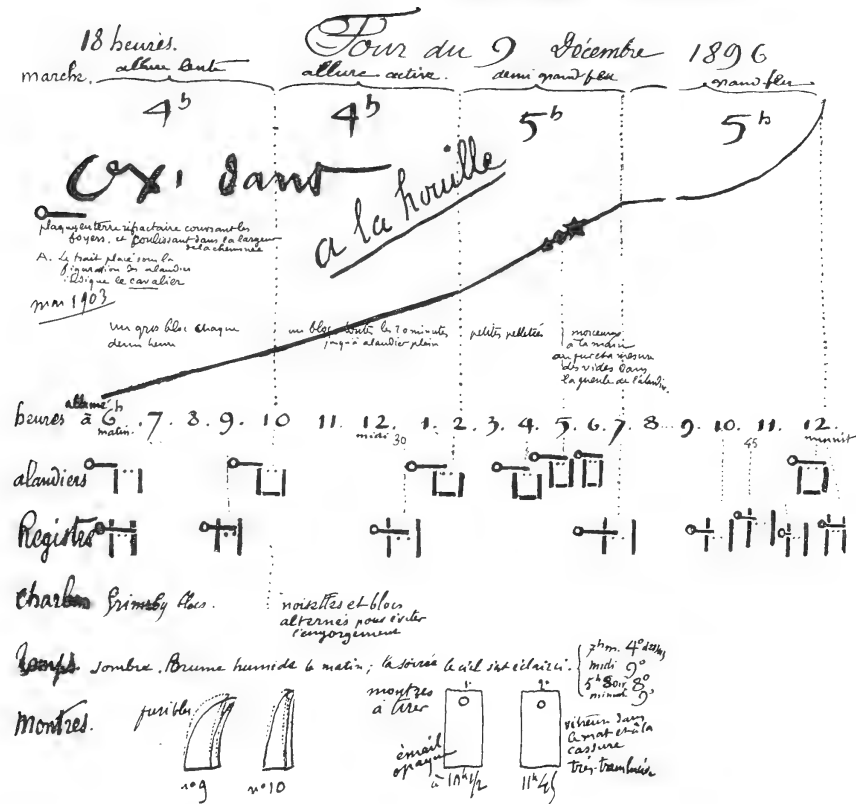 18 heures. Four du 9 Décembre 1896
marche. allure lente allure active. demi grand feu grand feu
4h 4h 5h 5h
Oxidant
a la houille
plaque en terre réfractaire couvrant les
foyers, et coulissant dans la largeur
de la cheminée
A. Le trait placé sous la
figuration des alandiers
indique le cavalier
mai 1903
un gros bloc chaque
demi heure
un bloc toutes les 20 minutes
jusqu'à alandier plein
petites pelletées
morceaux
à la main
au fur et à mesure
des vides dans
la gueule de l'alandier.
allumé
heures à 6h 7. 8. 9. 10 11. 12. 1. 2. 3. 4. 5. 6. 7. 8 9. 10. 11. 12.
matin. midi 30 45 minuit
alandiers
Registres
charbon Grimsby blocs.
noisettes et blocs
alternés pour éviter
l'engorgement
Temps. sombre. Brume humide le matin; la soirée le ciel s'est éclairci.
7h m. 4°
midi 9°
5h soir 8°
minuit 9°
Montres. fusibles
n°9 n°10
montres
à tirer
1° 2°
émail
opaque
à 10h 1/2 11h 45
vitreux dans
le mat et à la
cassure
très translucide